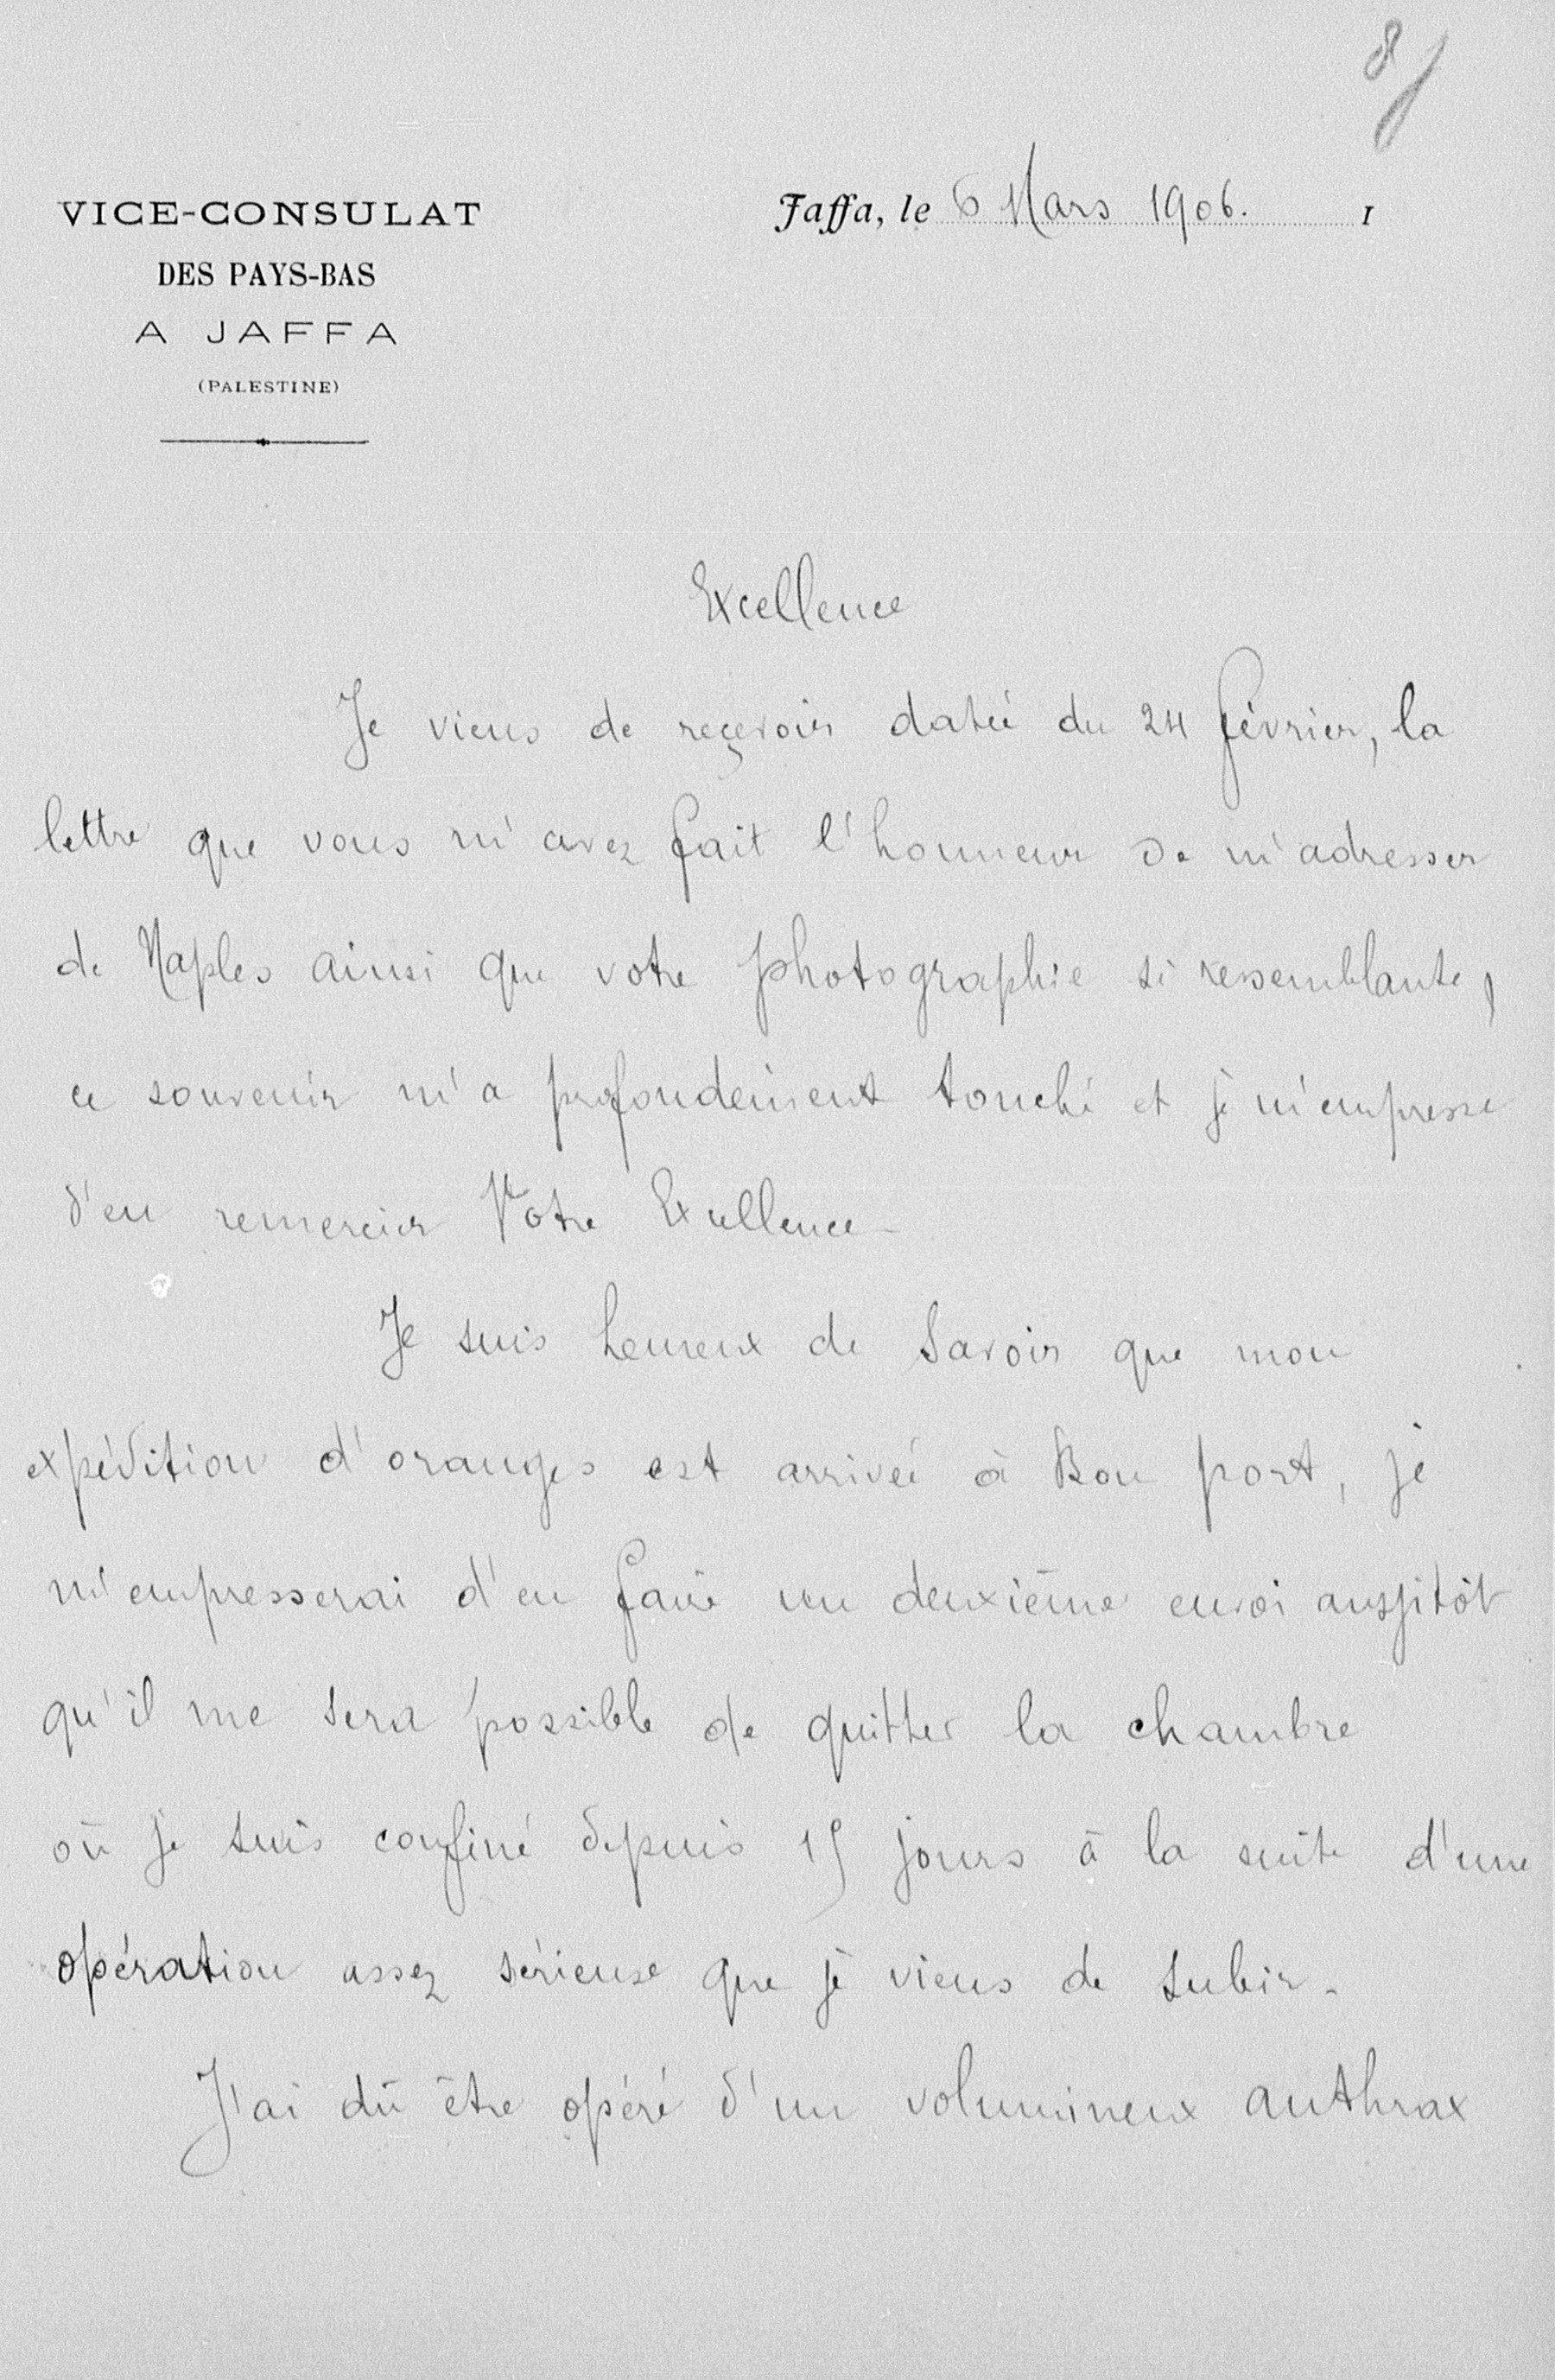 VICE-CONSULAT
DES PAYS-BAS
A JAFFA
(PALESTINE)
Jaffa, le 6 Mars 1906. 1
Excellence
Je viens de reçevoir datée du 24 février, la
lettre que vous m'avez fait l'honneur de m'adresser
de Naples ainsi que votre photographie si ressemblante,
ce souvenir m'a profondément touché et je m'empresse
d'en remercier Votre Excellence -
Je suis heureux de savoir que mon
expédition d'oranges est arrivée à Bon port, je
m'empresserai d'en faire un deuxième envoi aussitôt
qu'il me sera possible de quitter la chambre
où je suis confiné depuis 15 jours à la suite d'une
opération assez sérieuse que je viens de subir -
J'ai dû être opéré d'un volumineux anthrax